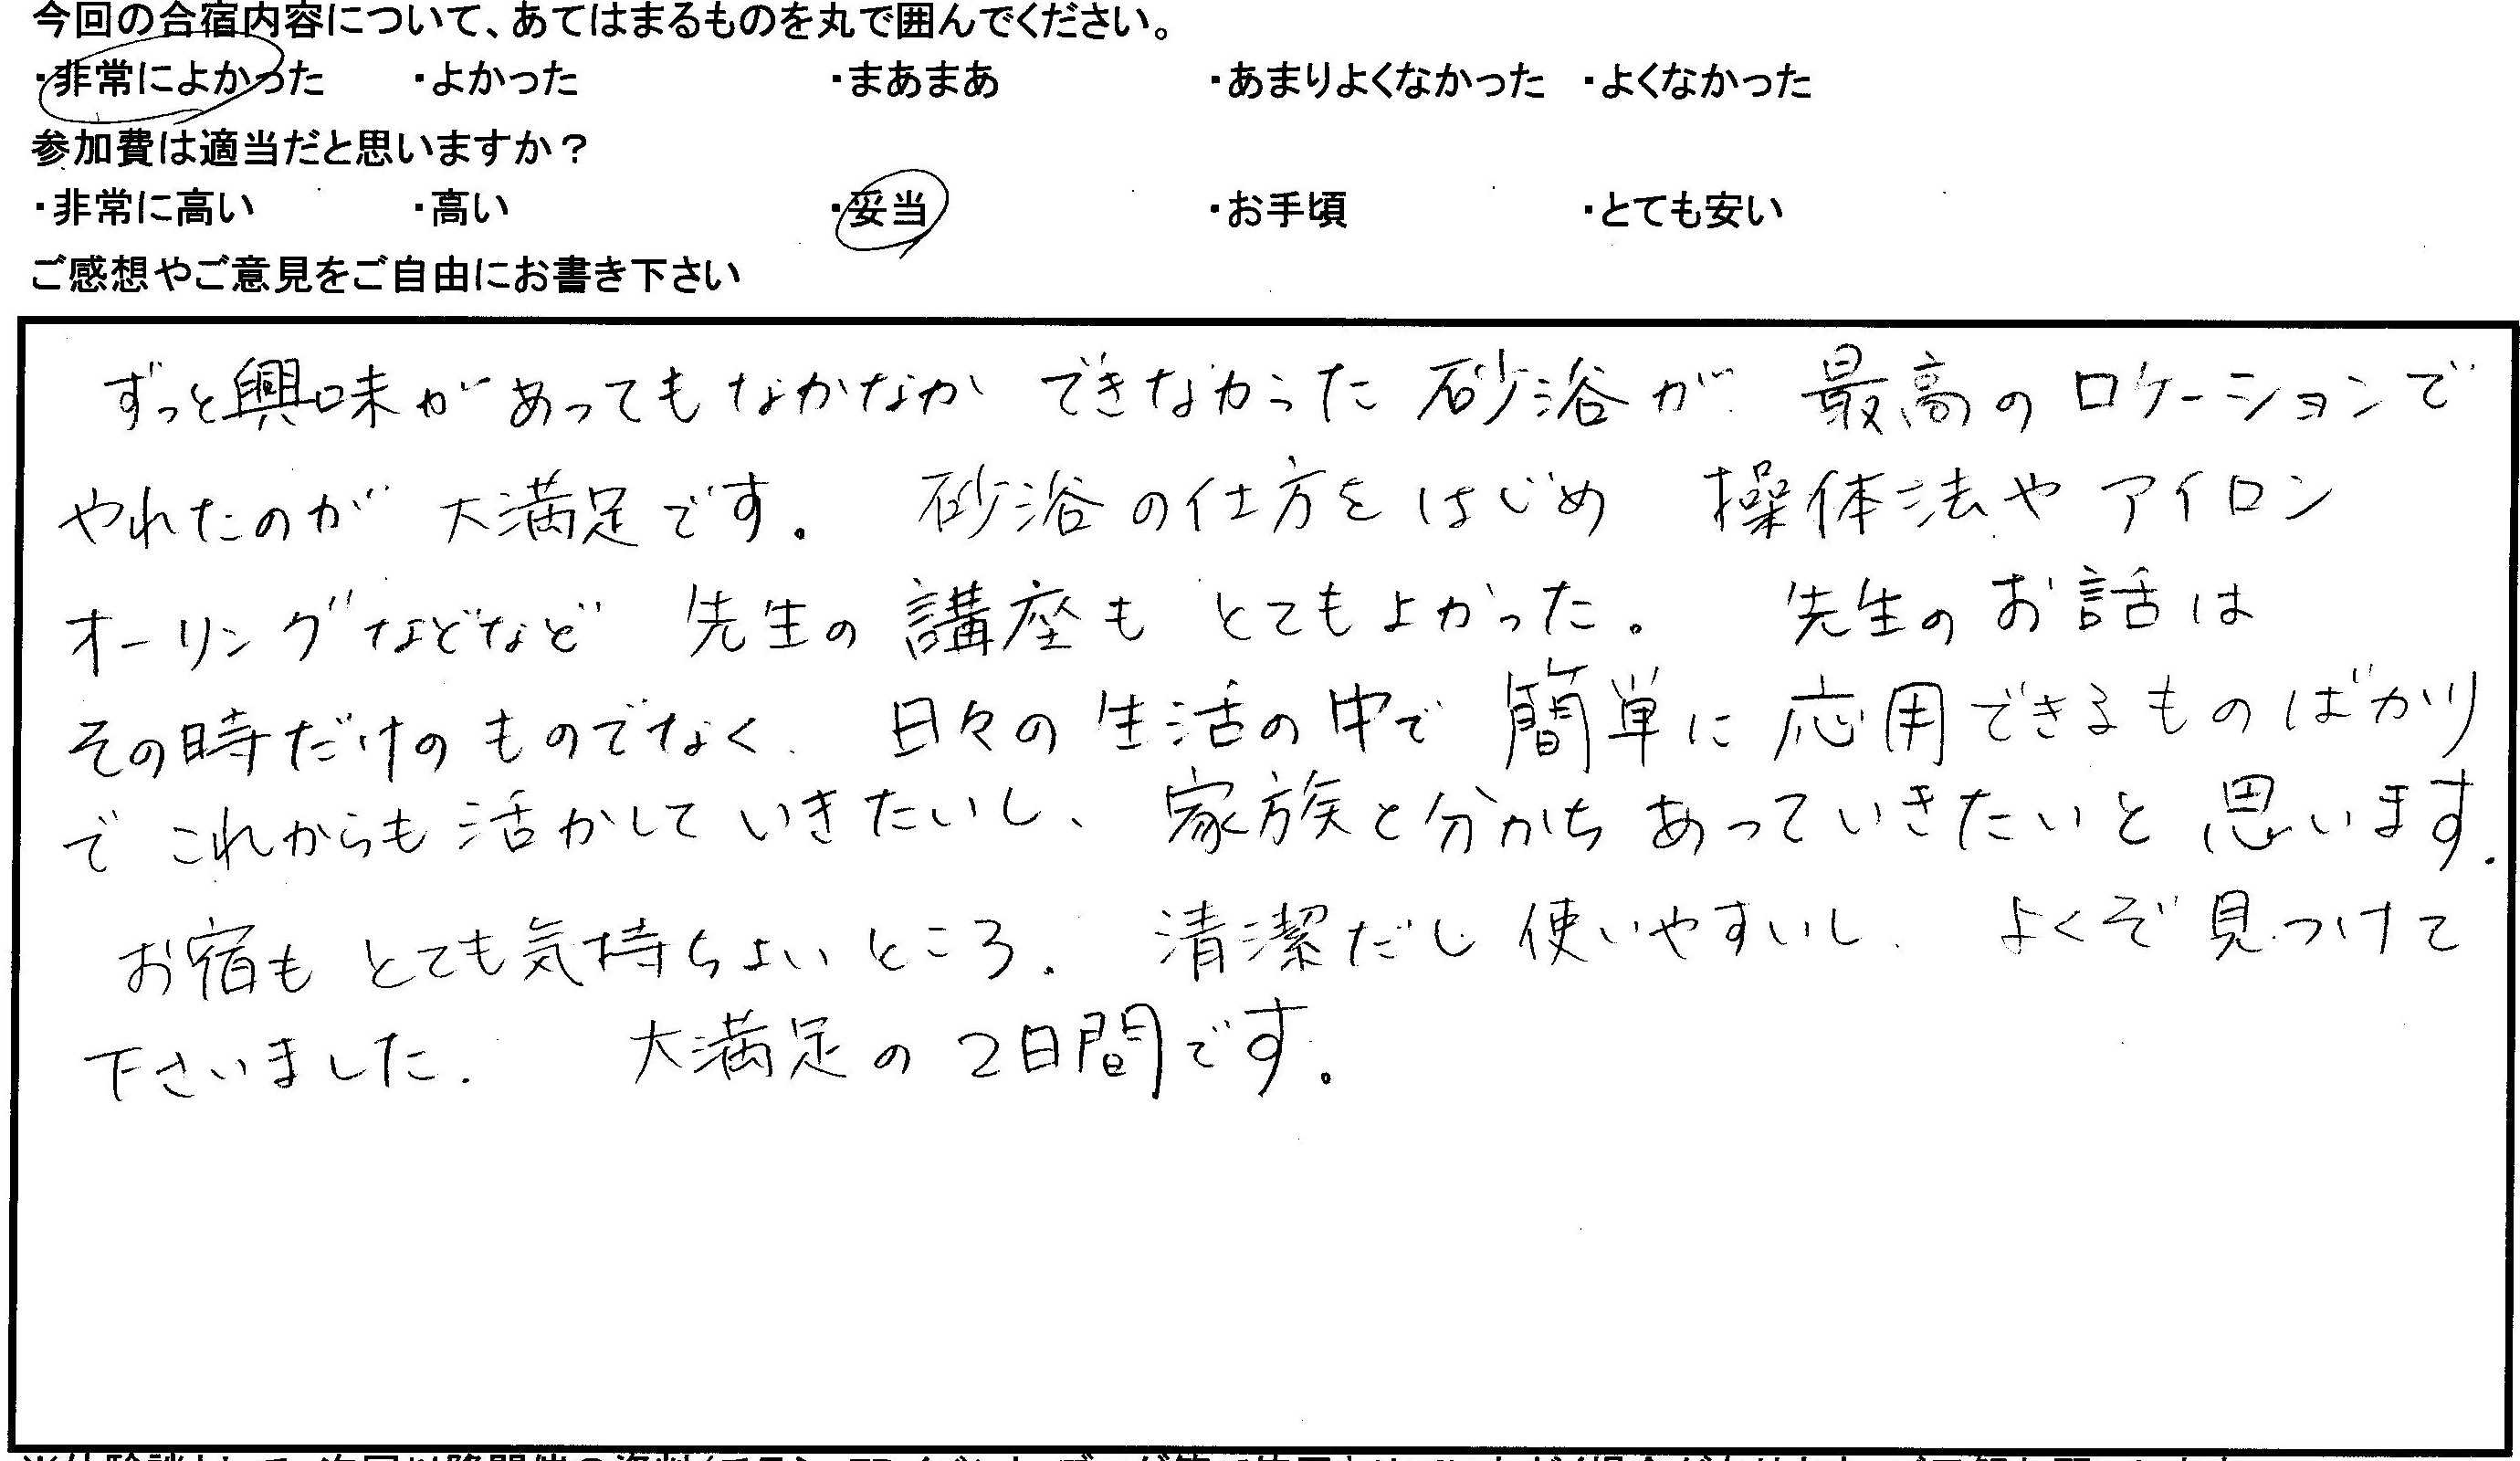 今回の合宿内容について、あてはまるものを丸で囲んでください。
・非常によかった ・よかった ・まあまあ ・あまりよくなかった ・よくなかった
参加費は適当だと思いますか？
・非常に高い ・高い ・妥当 ・お手頃 ・とても安い
ご感想やご意見をご自由にお書き下さい
ずっと興味があってもなかなか できなかった 砂浴が 最高のロケーションで
やれたのが 大満足です。 砂浴の仕方をはじめ 操体法や アイロン
オーリングなどなど 先生の講座も とてもよかった。 先生のお話は
その時だけの ものでなく、 日々の生活の中で 簡単に応用できるものばかり
で これからも活かして いきたいし、 家族と分かち あっていきたいと 思います.
お宿も とても気持ちよい ところ. 清潔だし 使いやすいし. よくぞ 見つけて
下さいました. 大満足の 2日間です。